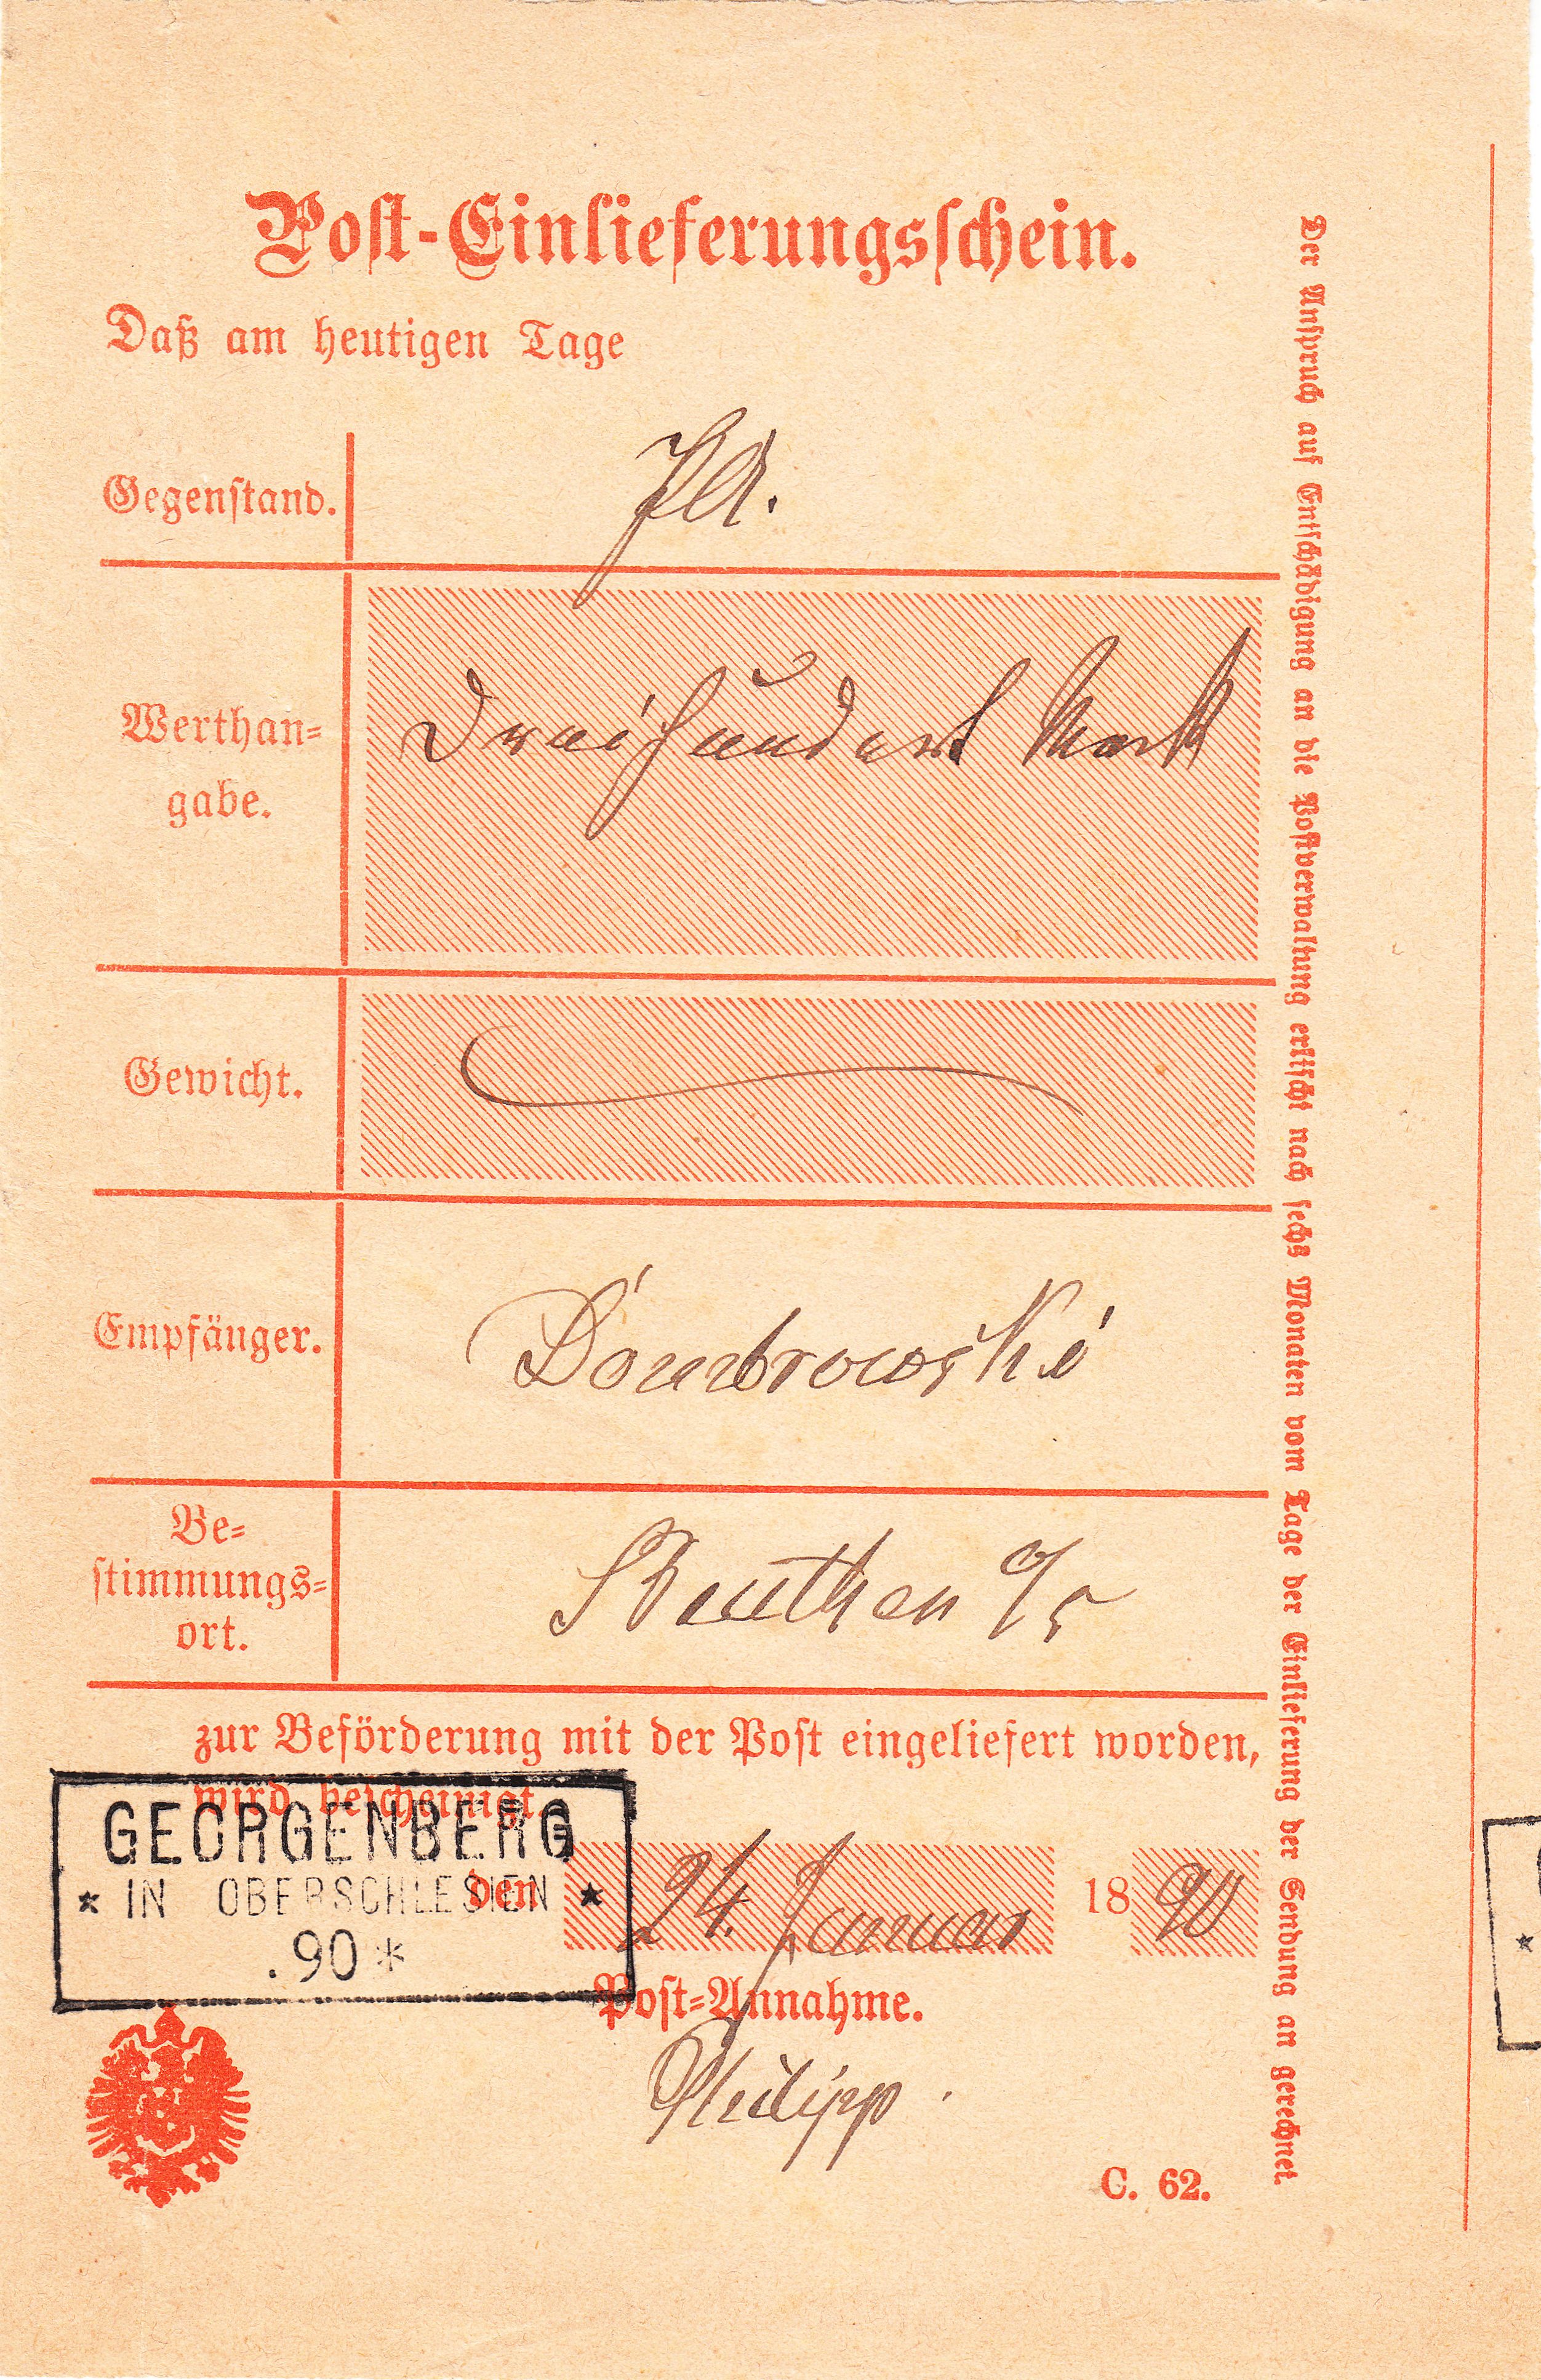 Post-Einlieferungsschein.
Daß am heutigen Tage
Gegenstand.
Werthan=
gabe.
Dreihundert Mark
Gewicht.
Empfänger.
Dombrowski
Be=
stimmungs=
ort.
Beuthen O/S
zur Beförderung mit der Post eingeliefert worden,
wird bescheinigt.
GEORGENBERG
* IN OBERSCHLESIEN *
.90*
den 24. Januar 1890
Post-Annahme.
Philipp.
C. 62.
Der Anspruch auf Entschädigung an die Postverwaltung erlischt nach sechs Monaten vom Tage der Einlieferung der Sendung an gerechnet